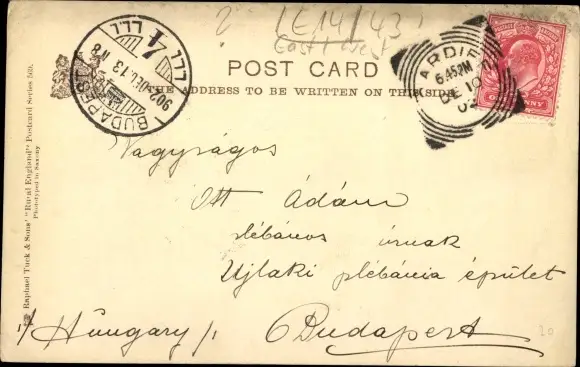 LE14/43
East & West
POST CARD
THE ADDRESS TO BE WRITTEN ON THIS SIDE
BUDAPEST
902 DEC. 13 N8
4
CARDIFF
6.45PM
DE 10
02
ONE PENNY
Nagyságos
Ott Ádám
plébános úrnak
Ujlaki plébánia épület
/Hungary/ Budapest
Raphael Tuck & Sons' "Rural England" Postcard Series
Phototyped in Saxony
20